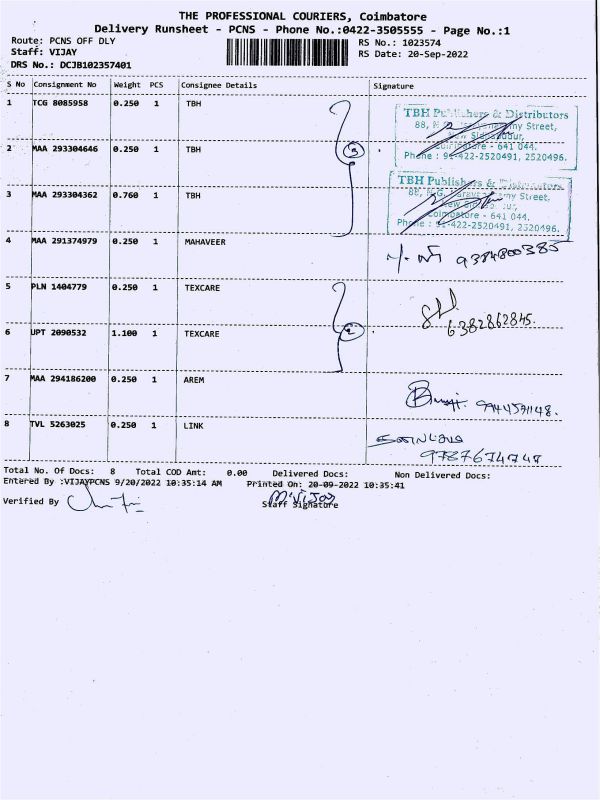 THE PROFESSIONAL COURIERS, Coimbatore
Delivery Runsheet - PCNS - Phone No.:0422-3505555 - Page No.:1
Route: PCNS OFF DLY RS No.: 1023574
Staff: VIJAY RS Date: 20-Sep-2022
DRS No.: DCJB102357401
S No Consignment No Weight PCS Consignee Details Signature
1 TCG 8085958 0.250 1 TBH
TBH Publishers & Distributors
Street,
Coimbatore - 641 044.
Phone : 91-422-2520491, 2520496.
2 MAA 293304646 0.250 1 TBH 3
3 MAA 293304362 0.760 1 TBH
TBH Publishers &
Street,
Coimbatore - 641 044.
Phone : 91-422-2520491, 2520496.
4 MAA 291374979 0.250 1 MAHAVEER
9384800385
5 PLN 1404779 0.250 1 TEXCARE
6382862845.
6 UPT 2090532 1.100 1 TEXCARE 2
7 MAA 294186200 0.250 1 AREM
8 TVL 5263025 0.250 1 LINK
Total No. Of Docs: 8 Total COD Amt: 0.00 Delivered Docs: Non Delivered Docs:
Entered By :VIJAYPCNS 9/20/2022 10:35:14 AM Printed On: 20-09-2022 10:35:41
Verified By M.Vijay
Staff Signature